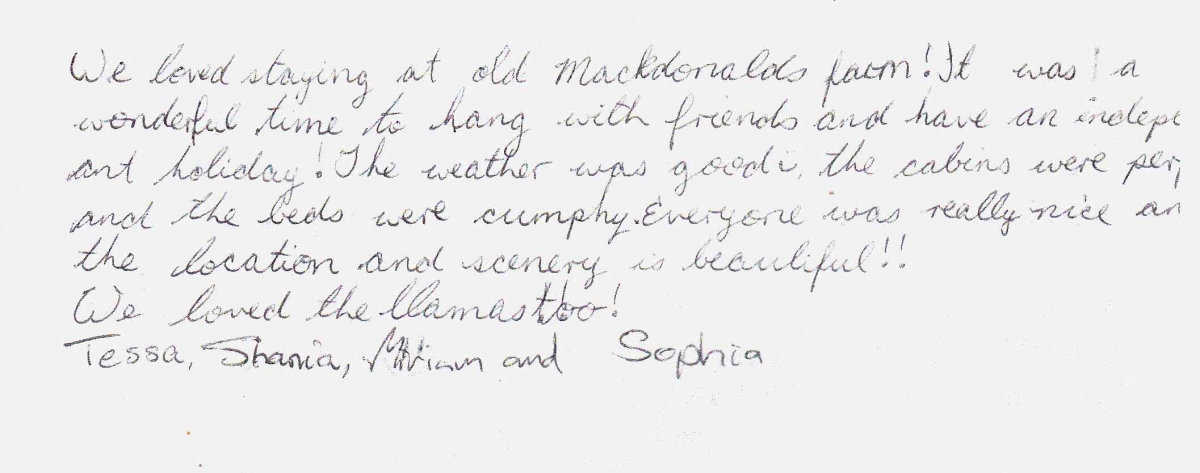 We loved staying at old Mackdonalds farm! It was a
wonderful time to hang with friends and have an indepe
ant holiday! The weather was good, the cabins were per
and the beds were cumphy. Everyone was really nice an
the location and scenery is beautiful!!
We loved the llamas too!
Tessa, Shania, Miriam and Sophia